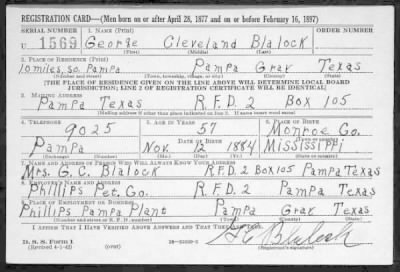 REGISTRATION CARD—(Men born on or after April 28, 1877 and on or before February 16, 1897)
SERIAL NUMBER 1. NAME (Print) ORDER NUMBER
U 1569 George Cleveland Blalock
(First) (Middle) (Last)
2. PLACE OF RESIDENCE (Print)
10 miles so. Pampa Pampa Gray Texas
(Number and street) (Town, township, village, or city) (County) (State)
[THE PLACE OF RESIDENCE GIVEN ON THE LINE ABOVE WILL DETERMINE LOCAL BOARD
JURISDICTION; LINE 2 OF REGISTRATION CERTIFICATE WILL BE IDENTICAL]
3. MAILING ADDRESS
Pampa Texas R.F.D. 2 Box 105
[Mailing address if other than place indicated on line 2. If same insert word same]
4. TELEPHONE 5. AGE IN YEARS 6. PLACE OF BIRTH
9025 57 Monroe Co.
DATE OF BIRTH
Pampa Nov. 12 1884 Mississippi
(Exchange) (Number) (Mo.) (Day) (Yr.) (State or country)
7. NAME AND ADDRESS OF PERSON WHO WILL ALWAYS KNOW YOUR ADDRESS
Mrs. G. C. Blalock R.F.D 2 Box 105 Pampa Texas
8. EMPLOYER'S NAME AND ADDRESS
Phillips Pet. Co. R.F.D 2 Pampa Texas
9. PLACE OF EMPLOYMENT OR BUSINESS
Phillips Pampa Plant Pampa Gray Texas
(Number and street or R. F. D. number) (Town) (County) (State)
I AFFIRM THAT I HAVE VERIFIED ABOVE ANSWERS AND THAT THEY ARE TRUE.
D. S. S. Form 1
(Revised 4-1-42) (over) (Registrant's signature)